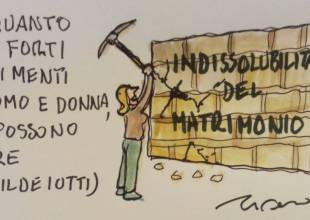 QUANTO
FORTI
IMENTI
OMO E DONNA,
POSSONO
RE
ILDE IOTTI)
INDISSOLUBILITÀ
DEL
MATRIMONIO